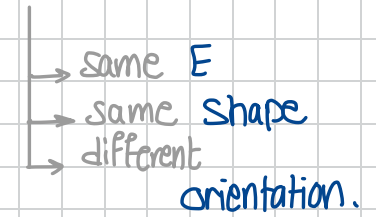 → same E
→ same shape
→ different
orientation.